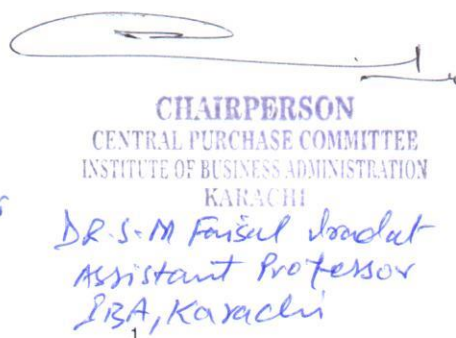 CHAIRPERSON
CENTRAL PURCHASE COMMITTEE
INSTITUTE OF BUSINESS ADMINISTRATION
KARACHI
DR. S. M Faisal Iradat
Assistant Professor
IBA, Karachi
1